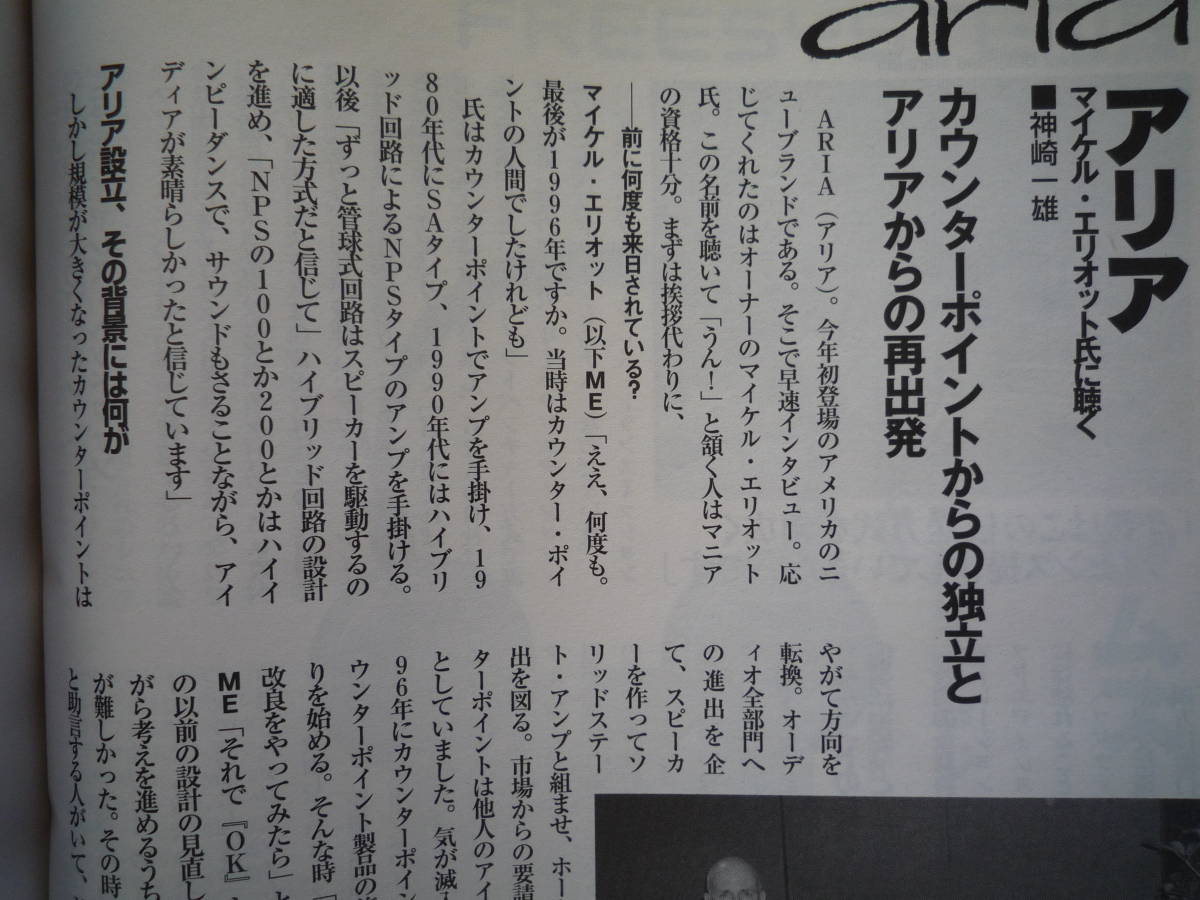 aria
アリア
マイケル・エリオット氏に聴く
■神崎一雄
カウンターポイントからの独立と
アリアからの再出発
ARIA（アリア）。今年初登場のアメリカのニ
ューブランドである。そこで早速インタビュー。応
じてくれたのはオーナーのマイケル・エリオット
氏。この名前を聴いて「うん！」と頷く人はマニア
の資格十分。まずは挨拶代わりに、
――前に何度も来日されている？
マイケル・エリオット（以下ME）「ええ、何度も。
最後が1996年ですか。当時はカウンター・ポイ
ントの人間でしたけれども」
氏はカウンターポイントでアンプを手掛け、19
80年代にSAタイプ、1990年代にはハイブリ
ッド回路によるNPSタイプのアンプを手掛ける。
以後「ずっと管球式回路はスピーカーを駆動するの
に適した方式だと信じて」ハイブリッド回路の設計
を進め、「NPSの100とか200とかはハイイ
ンピーダンスで、サウンドもさることながら、アイ
ディアが素晴らしかったと信じています」
アリア設立、その背景には何が
しかし規模が大きくなったカウンターポイントは
やがて方向を
転換。オーデ
ィオ全部門へ
の進出を企
て、スピーカ
ーを作ってソ
リッドステー
ト・アンプと組ませ、ホー
出を図る。市場からの要請
ターポイントは他人のアイ
としていました。気が滅入
96年にカウンターポイン
ウンターポイント製品の
りを始める。そんな時「
改良をやってみたら」と
ME「それで『OK』
の以前の設計の見直し
がら考えを進めるうち
が難しかった。その時
と助言する人がいて、